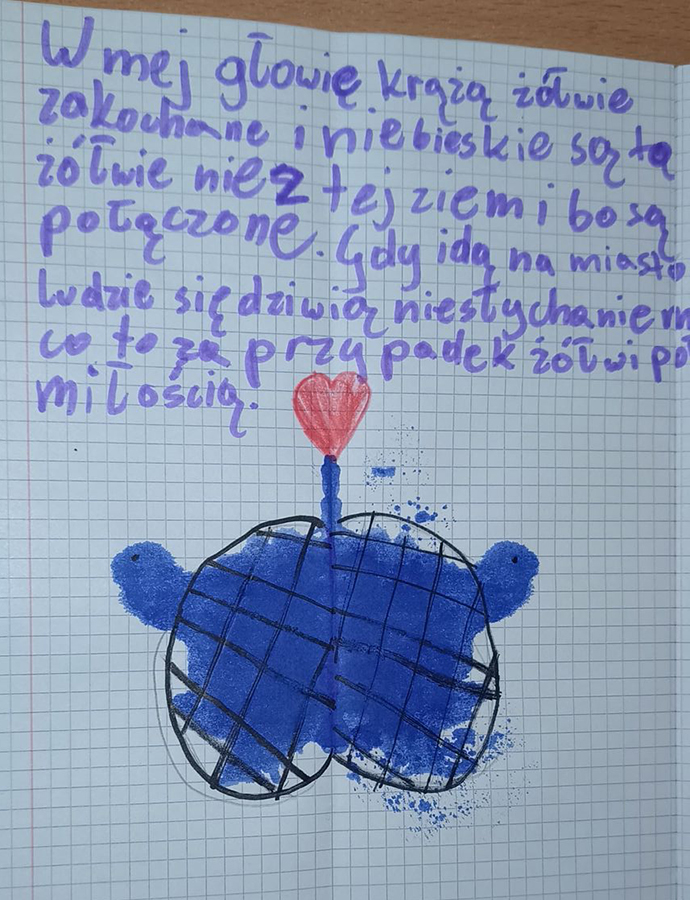 W mej głowię krążą żółwie
zakochane i niebieskie są tą
żółwie nie z tej ziemi bo są
połączone. Gdy idą na miasto
ludzie się dziwią niesłychanie
co to za przypadek żółwi
miłością.